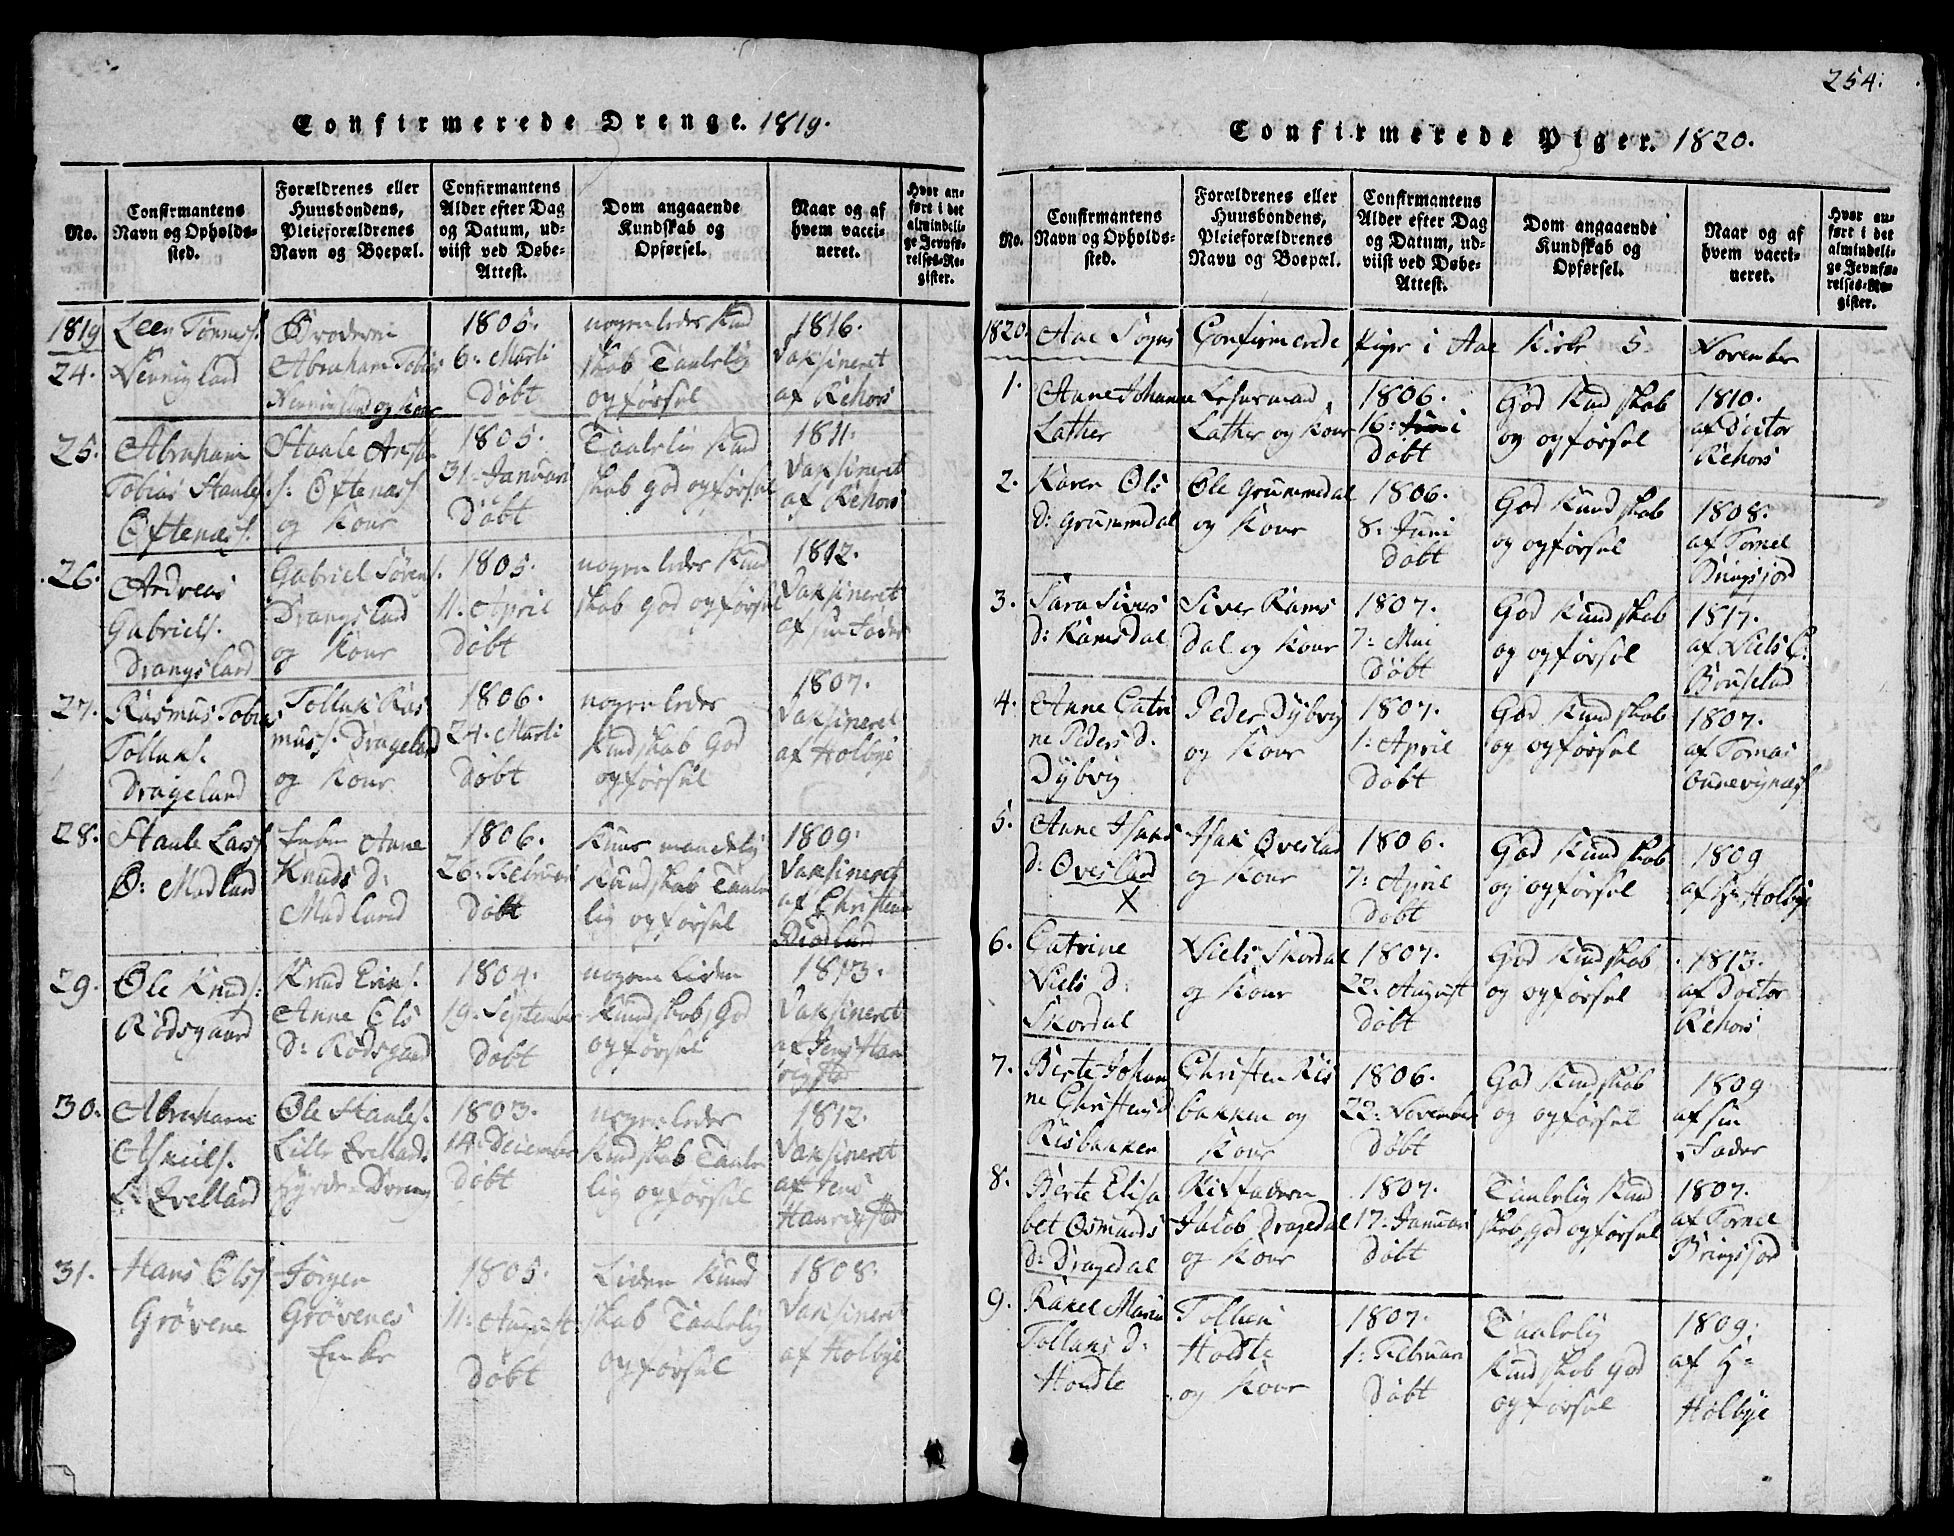 Confirmerede Drenge. 1819.
No.
Confirmantens
Navn og Opholds-
sted.
Forældrenes eller
Huusbondens,
Pleieforældrenes
Navn og Boepæl.
Confirmantens
Alder efter Dag
og Datum, ud-
viist ved Døbe-
Attest.
Dom angaaende
Kundskab og
Opførsel.
Naar og af
hvem vacci-
neret.
Hvor an-
ført i det
almindeli-
ge Jevnfø-
relses-Re-
gister.
1819
24.
Leen Tønness.
Vennigland
Broderen
Abraham Tobias
og Kone
1805.
6: Marti
Døbt
nogenledes Kund
skab Taalelig
opførsel
1816.
Vaksineret
af Rehors
25.
Abraham
Tobias Staales.
Øftenæss.
Staale
s: Øftenæss
og Kone
1805.
31. Januari
Døbt
Taalelig Kund
skab god opførsel
1811.
Vaksineret
af Rehors
26.
Andreas
Gabriels.
Drangsland
Gabriel Sørens.
Drangsland
og Kone
1805.
11. April
Døbt
nogenledes Kund
skab god opførsel
1812.
Vaksineret
af sin Fader
27.
Rasmus Tobias
Tollaks.
Drageland
Tollak Ras
muss. Drageland
og Kone
1806.
24. Marti
Døbt
nogenledes
Kundskab God
opførsel
1807.
Vaksineret
af Holbye
28.
Staale Larss
Ø: Madland
Enken Anne
Knuds D:
Madland
1806.
26. Februari
Døbt
Kuns maadelig
Kundskab Taale
lig opførsel
1809.
Vaksineret
af Christen
29.
Ole Knuds:
Rødsgaard
Knud Eriks.
Anne Ols
D: Rødsgaard
1804.
19. September
Døbt
nogen Liden
Kundskab God
opførsel
1813.
Vaksineret
af Jens Han
30.
Abraham
L: Evelland
Ole Staales.
Lille Evelland.
1803.
14. December
Døbt
nogenledes
Kundskab Taale
lig opførsel
1812.
Vaksineret
af Jens
31.
Hans Olss
Grøvene
Jørgen
Grøvenes
Enke
1805.
11. August
Døbt
Liden Kund
skab Taalelig
opførsel
1808.
Vaksineret
af Holbye
254.
Confirmerede Piger. 1820.
No.
Confirmantens
Navn og Opholds-
sted.
Forældrenes eller
Huusbondens,
Pleieforældrenes
Navn og Boepæl.
Confirmantens
Alder efter Dag
og Datum, ud-
viist ved Døbe-
Attest.
Dom angaaende
Kundskab og
Opførsel.
Naar og af
hvem vacci-
neret.
Hvor an-
ført i det
almindeli-
ge Jevnfø-
relses-Re-
gister.
1820. Aae Sogns Confirmerede Piger i Aae Kirke 5 November
1.
Anne Johanne
Lather
Lensmand
Lather og Kone
1806.
16: Juni
Døbt
God Kundskab
og opførsel
1810.
af Doctor
Rehors
2.
Karen Ols
D: Grummedal
Ole Grummedal
og Kone
1806.
8. Juni
Døbt
God Kundskab
og opførsel
1808.
af Tomel
Bringsjord
3.
Sara Sivers
D: Ramsdal
Siver Rams
dal og Kone
1807.
7: Mai
Døbt
God Kundskab
og opførsel
1817.
af Niels
4.
Anne Catri
ne Peders D.
Dybvig
Peder Dybvig
og Kone
1807.
1. April
Døbt
God Kundskab
og opførsel
1807.
af Tomas
5.
Anne Isaks
D: Øvesland
X
Isak Øvesland
og Kone
1806.
7: April
Døbt
God Kundskab
og opførsel
1809
af Hr Holbye
6.
Catrine
Niels D:
Skordal
Niels Skordal
og Kone
1807.
22. August
Døbt
God Kundskab
og opførsel
1813.
af Doctor
Rehors
7.
Berte Johan
ne Christens D
Risbakken
Christen Ris
bakken og
Kone
1806.
22. November
Døbt
God Kundskab
og opførsel
1809
af sin
Fader
8.
Berte Elisa
bet Osmunds
D: Dragedal
Stiffaderen
Jakob Dragedal
og Kone
1807.
17. Januari
Døbt
Taalelig Kund
skab, god opførsel
1807.
af Tomel
Bringsjord
9.
Rakel Maria
Tollaks D:
Holdte
Holdte
og Kone
1807.
1: Februari
Døbt
Taalelig
Kundskab God
opførsel
1809.
af H=
Holbye